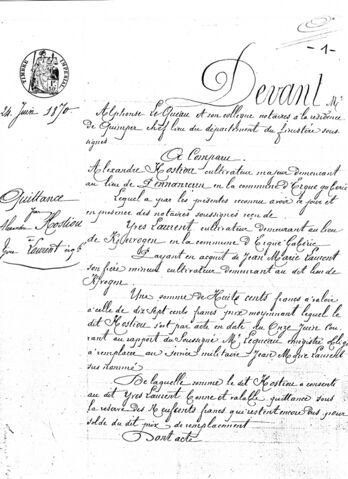 - 1 -
TIMBRE IMPERIAL
24 Juin 1870
Quittance
par
Alexandre Hostiou
à
Yves Laurent
Devant Me
Alphonse Le Quéau et son collègue notaires à la résidence
de Quimper chef lieu du département du finistère sous-
signés
A Comparu
Alexandre Hostiou cultivateur majeur demeurant
au lieu de en la commune d'Ergué gabéric
Lequel a par les présentes reconnu avoir ce jour et
en présence des notaires soussignés reçu de
Yves Laurent cultivateur demeurant au lieu
de Khrogen en la commune d'Ergué Gabéric
Et ayant en acquit de Jean Marie Laurent
son frère mineur cultivateur demeurant au dit lieu de
Krogen.
Une somme de Huit cents francs à valoir
à celle de dix Sept cents francs prix moyennant lequel le
dit Hostiou s'est par acte en date du Onze Juin Cou-
rant au rapport du Soussigné Me Lequéau enregistré obligé
à remplacer au service militaire Jean Marie Laurent
sus nommé
De laquelle somme le dit Hostiou a consenti
au dit Yves Laurent bonne et valable quittance sous
la réserve des Neuf cents francs qui restent encore dus pour
solde du dit prix de remplacement
Dont acte